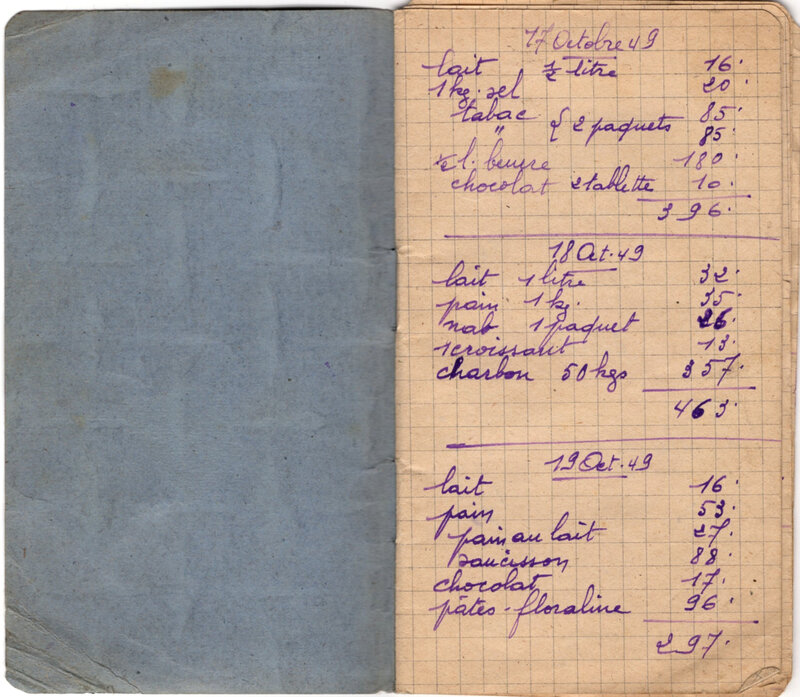 17 Octobre 49
lait ½ litre 16.
1 kg. sel 20.
tabac { 2 paquets 85.
" 85.
½ l. beurre 180.
chocolat 2 tablette 10.
396.
18 Oct. 49
lait 1 litre 32.
pain 1 kg. 35.
nab 1 paquet 26.
1 croissant 13.
charbon 50 kgs 357.
463.
19 Oct. 49
lait 16.
pain 53.
pain au lait 27.
saucisson 88.
chocolat 17.
pâtes-floraline 96.
297.